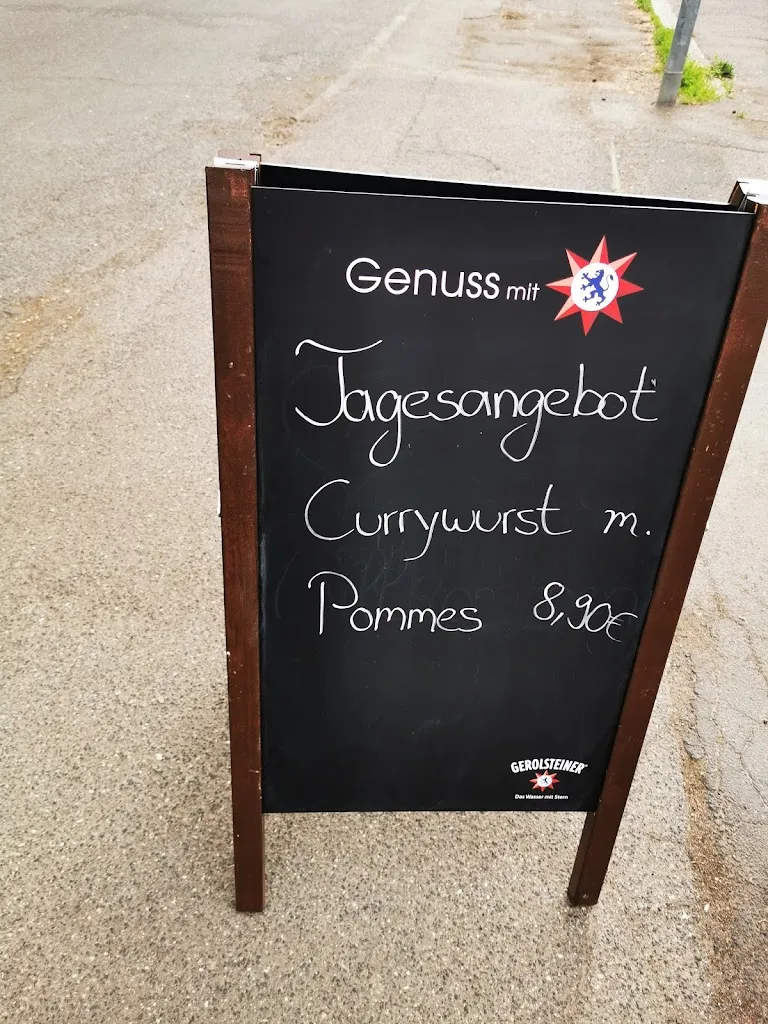 Genuss mit
Tagesangebot
Currywurst m.
Pommes 8,90€
GEROLSTEINER
Das Wasser mit Stern